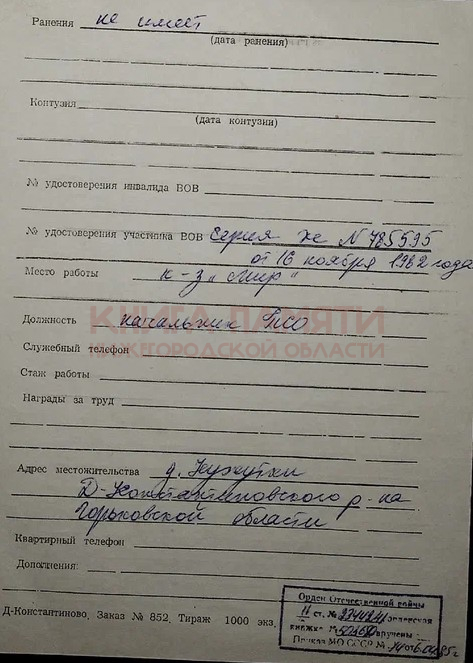 Ранения не имеет
(дата ранения)
Контузия
(дата контузии)
№ удостоверения инвалида ВОВ
№ удостоверения участника ВОВ Серия Же № 785595
от 16 ноября 1982 года
Место работы к-з „Мир"
КНИГА ПАМЯТИ
НИЖЕГОРОДСКОЙ ОБЛАСТИ
Должность начальник ПСО
Служебный телефон
Стаж работы
Награды за труд
Адрес местожительства д.
Д-Константиновского р-на
Горьковской области
Квартирный телефон
Дополнения:
Д-Константиново, Заказ № 852, Тираж 1000 экз.
Орден Отечественной войны
II ст. № орденская
книжка № вручены
Приказ МО СССР №